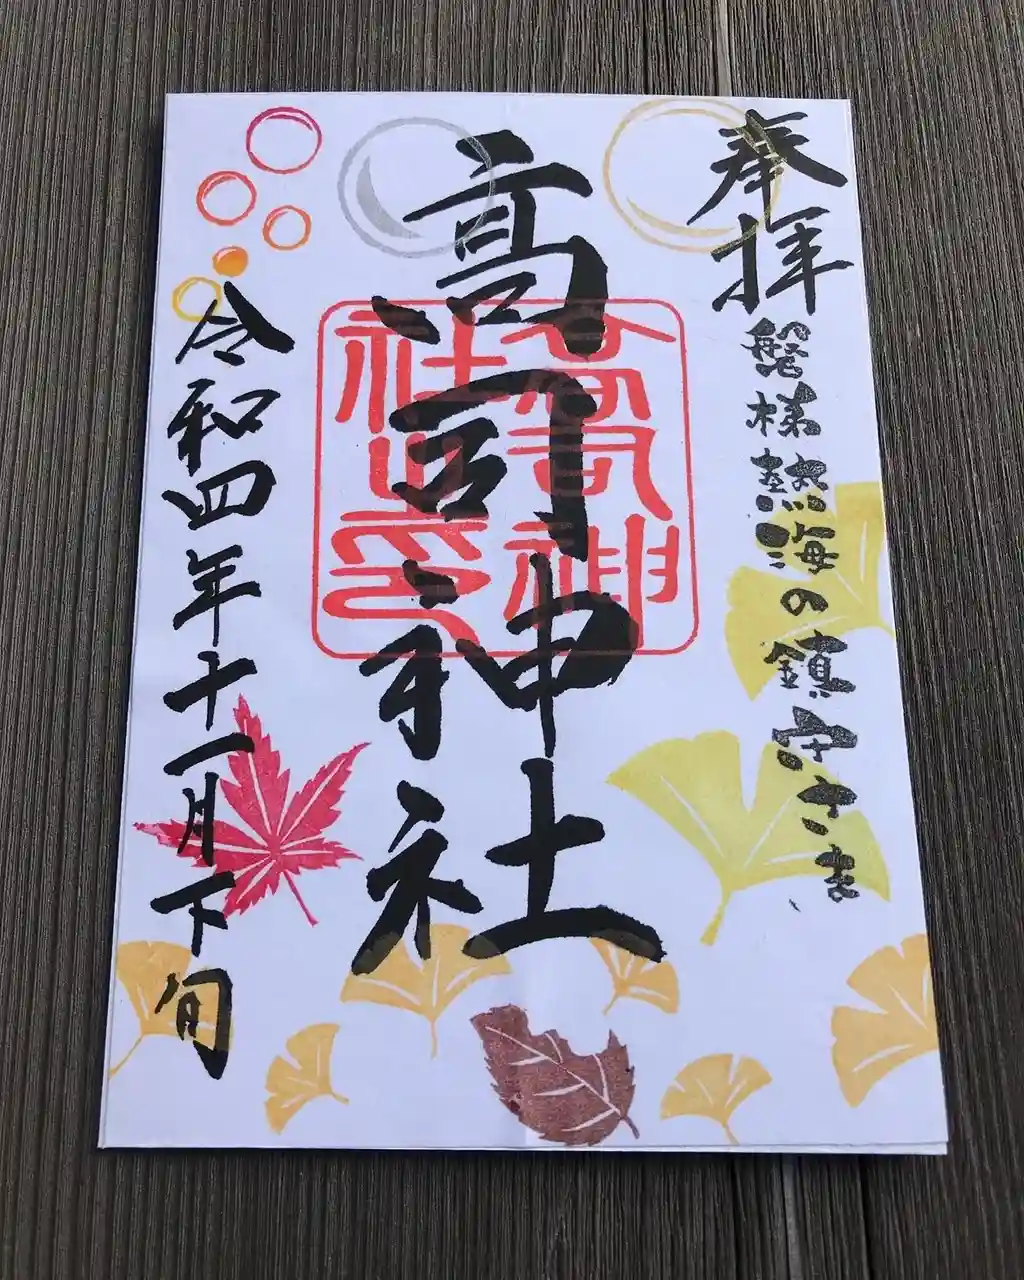 奉拝
磐梯熱海の鎮守さま
高司神社
高司神社之印
令和四年十一月下旬